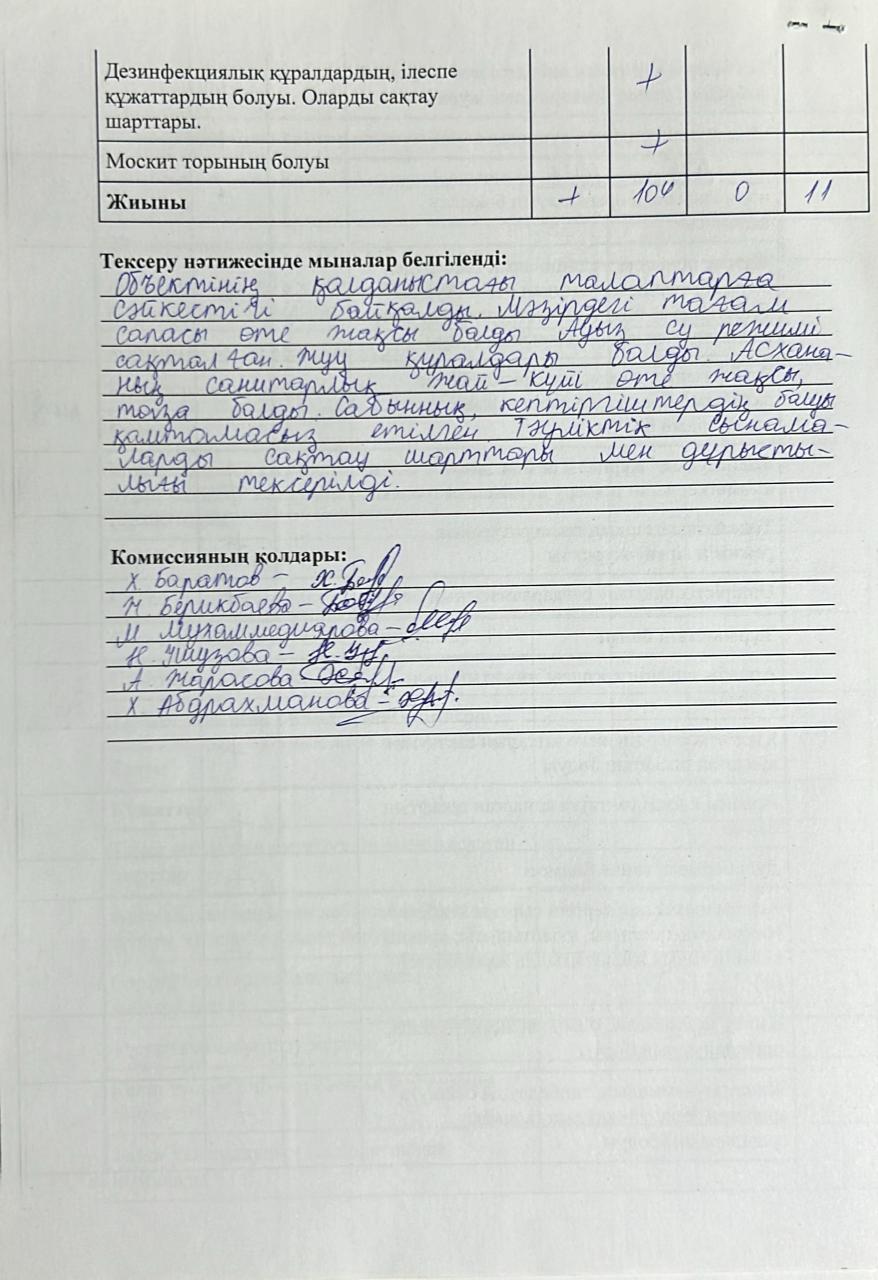 Дезинфекциялық құралдардың, ілеспе +
құжаттардың болуы. Оларды сақтау
шарттары.
Москит торының болуы +
Жиыны + 104 0 11
Тексеру нәтижесінде мыналар белгіленді:
Объектінің қалданыстағы талаптарға
сәйкестігі байқалды. Мәзірдегі тағам
сапасы өте жақсы балды Ауыз су режимі
сақталған. Жуу құралдары балды. Асхана-
ның санитарлық жай-күйі өте жақсы,
таза балды. Сабынның, кептіргіштердің балуы
қамтамасыз етілген Тәуліктік сынама-
ларды сақтау шарттары мен дұрысты-
лығы тексерілді.
Комиссияның қолдары:
Х. Баратов -
Н Берикбаева -
М Мухаммедиярова -
Н. -
А. Жарасова
Х. Абдрахманова -